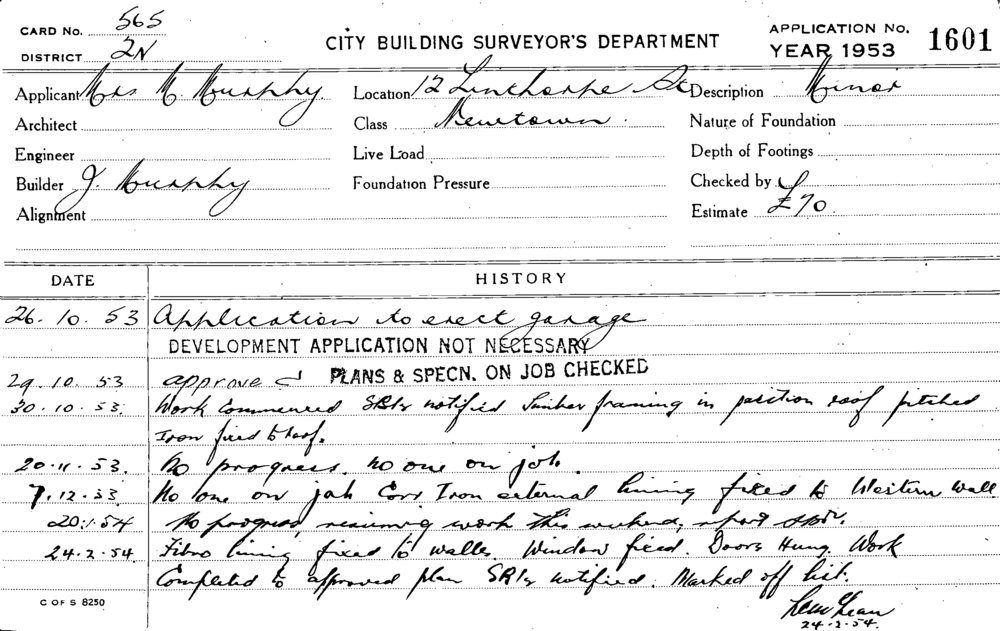 CARD No. 565
DISTRICT 2N
CITY BUILDING SURVEYOR'S DEPARTMENT
APPLICATION No.
YEAR 1953 1601
Applicant Mrs M Murphy Location 12 Linthorpe St Description Minor
Architect Class Newtown. Nature of Foundation
Engineer Live Load Depth of Footings
Builder J. Murphy Foundation Pressure Checked by
Alignment Estimate £70
DATE HISTORY
26.10.53 Application to erect garage
DEVELOPMENT APPLICATION NOT NECESSARY
29.10.53 approved PLANS & SPECN. ON JOB CHECKED
30.10.53. Work Commenced notified framing in position roof pitched
Iron fixed to roof.
20.11.53. No progress. no one on job.
7.12.53 No one on job Corr Iron external lining fixed to Western wall
20.1.54 No progress, resuming work this weekend,
24.2.54. Fibro lining fixed to walls. Window fixed. Doors Hung. Work
Completed to approved plan notified. Marked off list.
24.2.54.
C OF S 8250